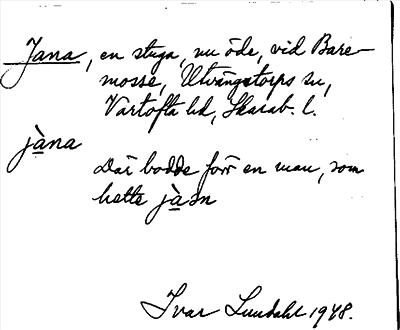 Jana, en stuga, nu öde, vid Bare-
mosse, Utvängstorps sn,
Vartofta hd, Skarab. l.
jàna
Där bodde förr en man, som
hette jàən
Ivar Lundahl 1948.